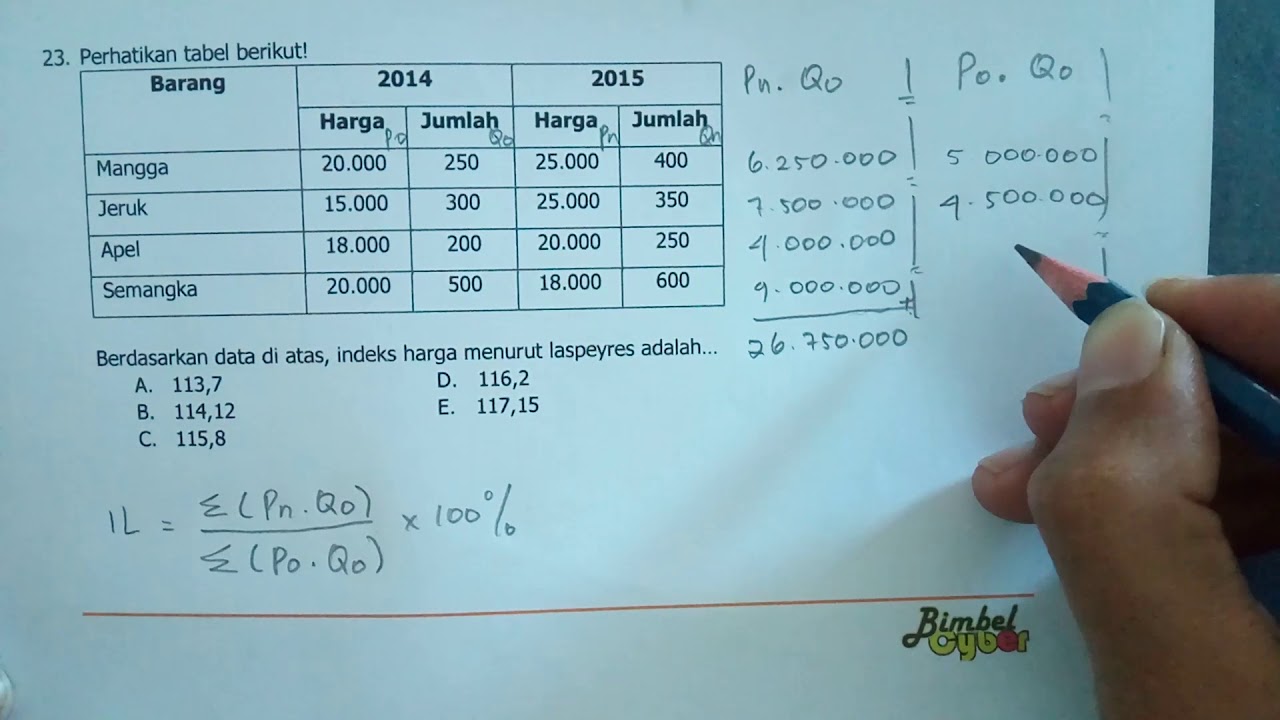 23. Perhatikan tabel berikut!
Barang 2014 2015
Harga Po Jumlah Qo Harga Pn Jumlah Qn
Mangga 20.000 250 25.000 400
Jeruk 15.000 300 25.000 350
Apel 18.000 200 20.000 250
Semangka 20.000 500 18.000 600
Pn. Qo Po. Qo
6.250.000 5 000.000
7.500.000 4.500.000
4.000.000
9.000.000 +
26.750.000
Berdasarkan data di atas, indeks harga menurut laspeyres adalah...
A. 113,7 D. 116,2
B. 114,12 E. 117,15
C. 115,8
IL = Σ(Pn.Qo) × 100%
Σ(Po.Qo)
Bimbel
Cyber